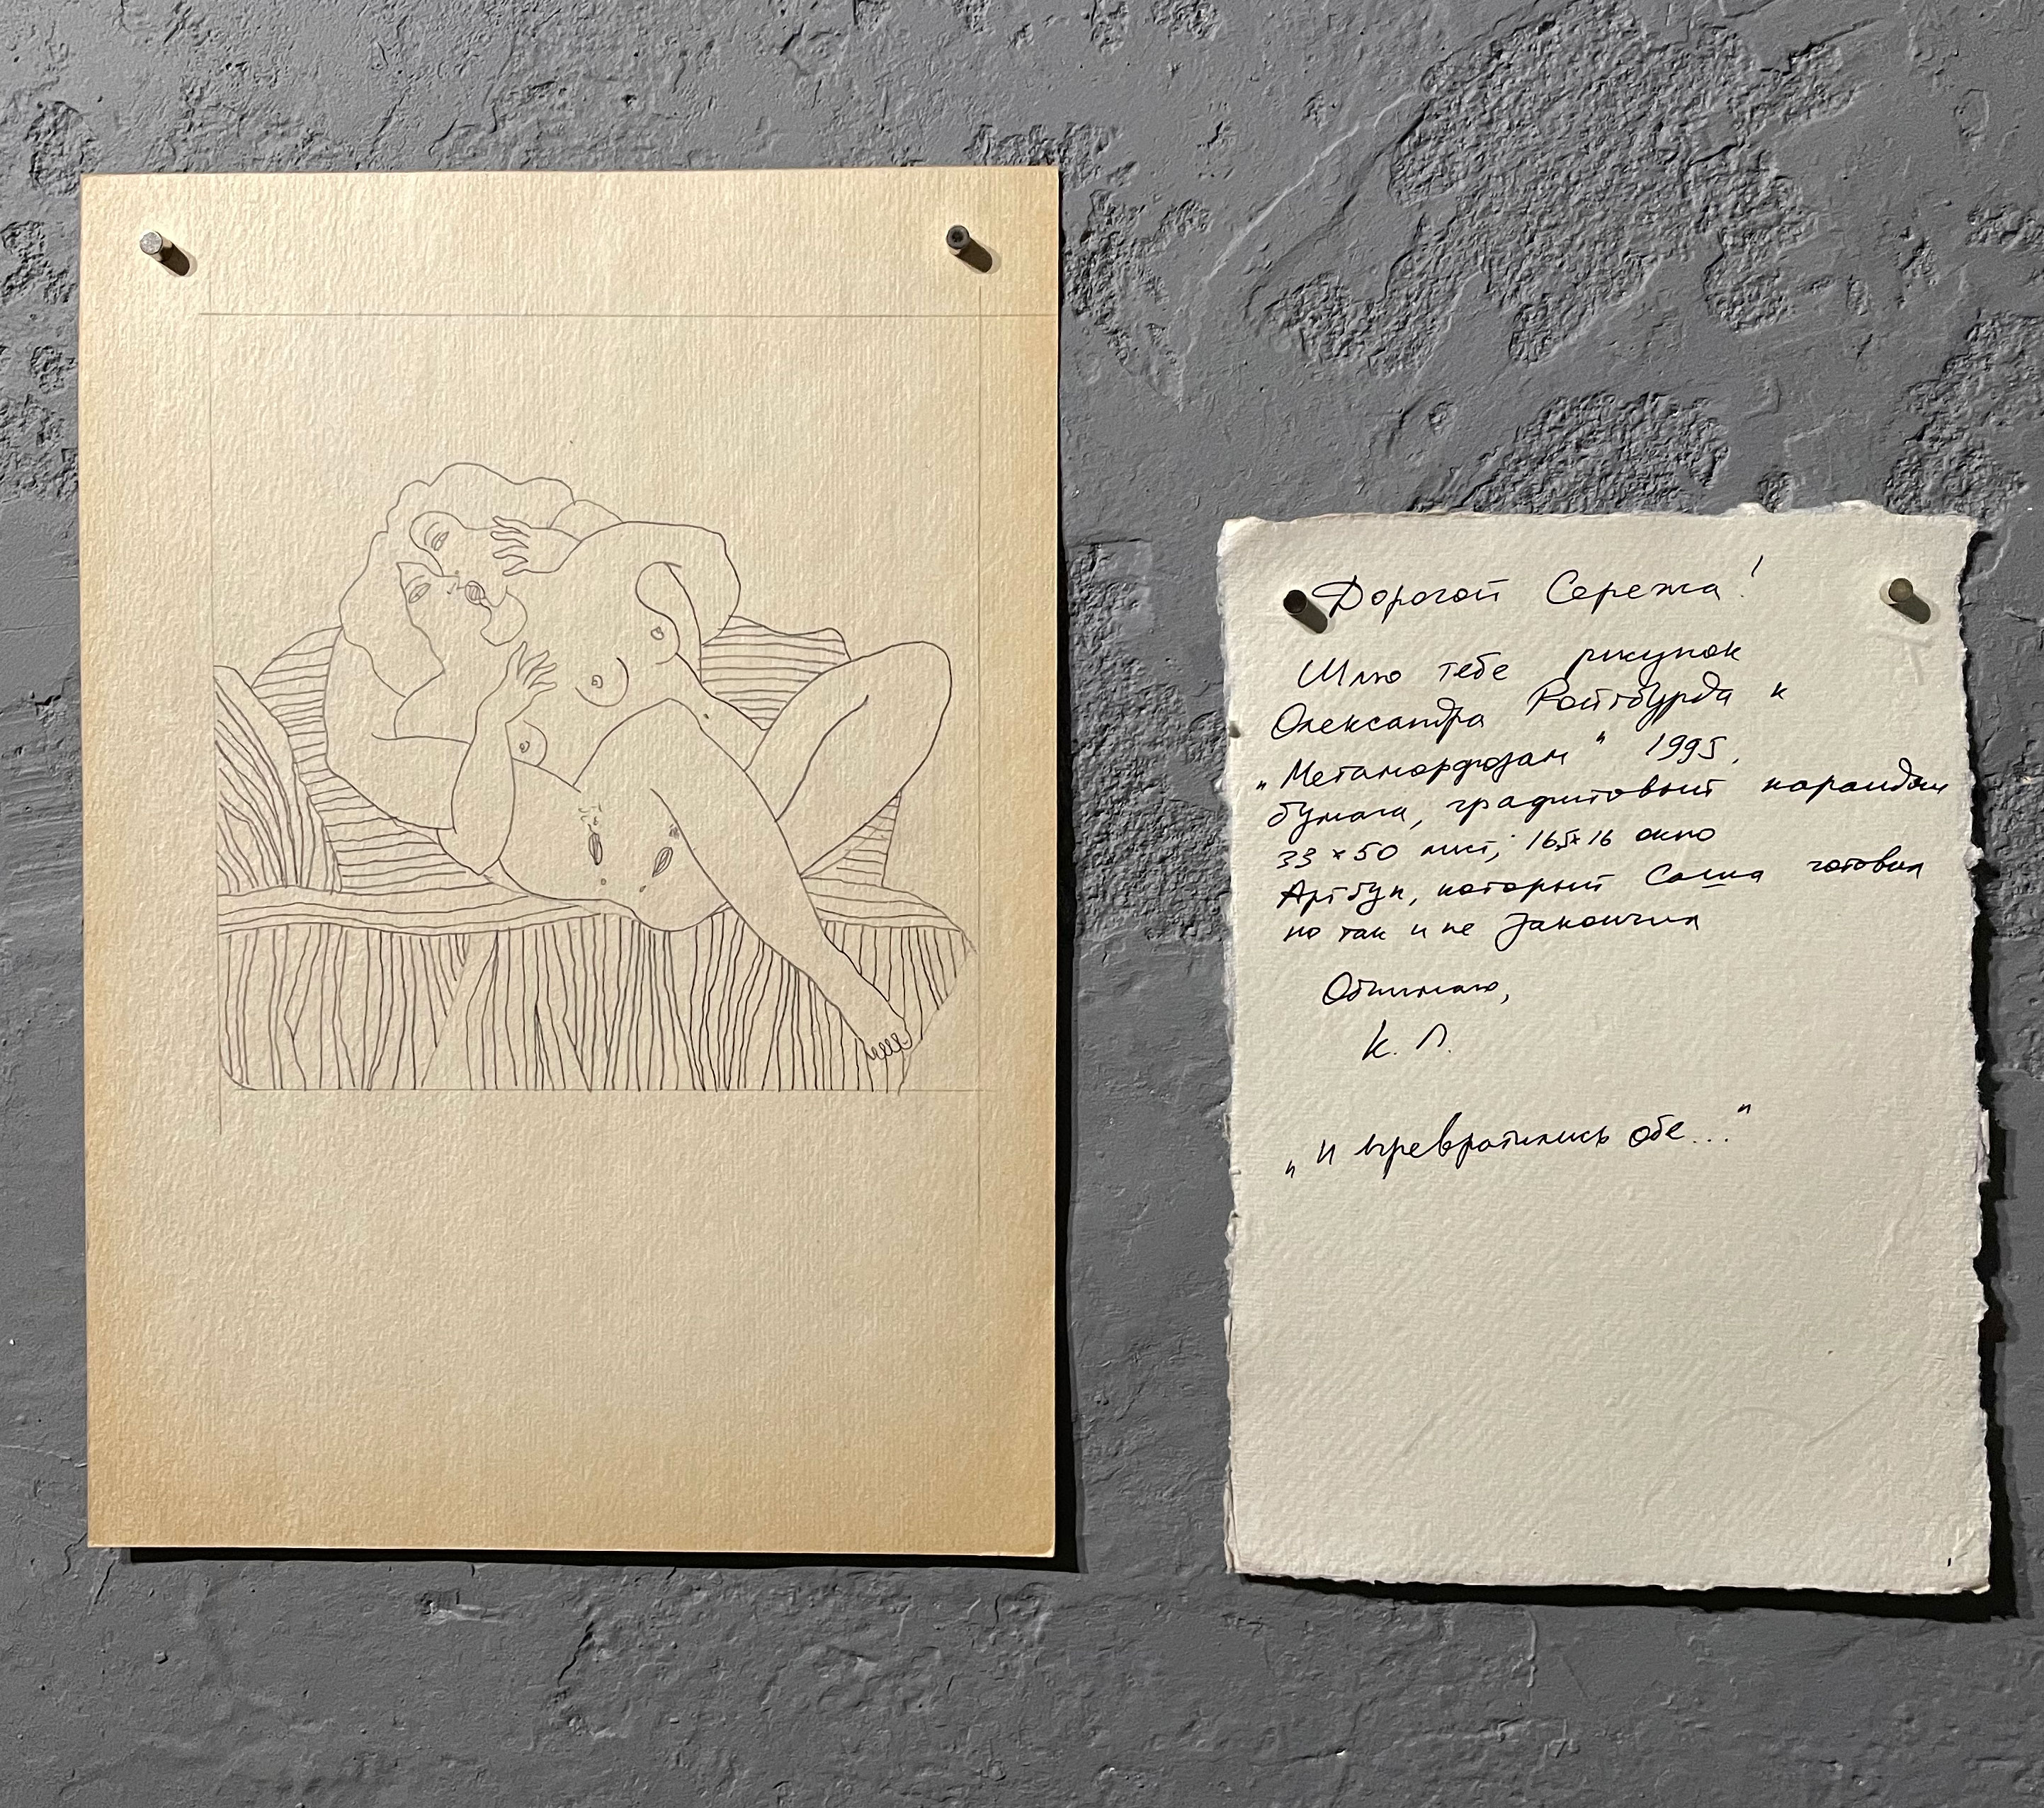 Дорогой Сережа!
Шлю тебе рисунок
Олександра Ройтбурда к
"Метаморфозам" 1995,
бумага, графитовый карандаш
33 × 50 лист; 16,5×16 окно
Артбук, который Саша готовил
но так и не закончил
Обнимаю,
К. Л.
„и превратились обе..."